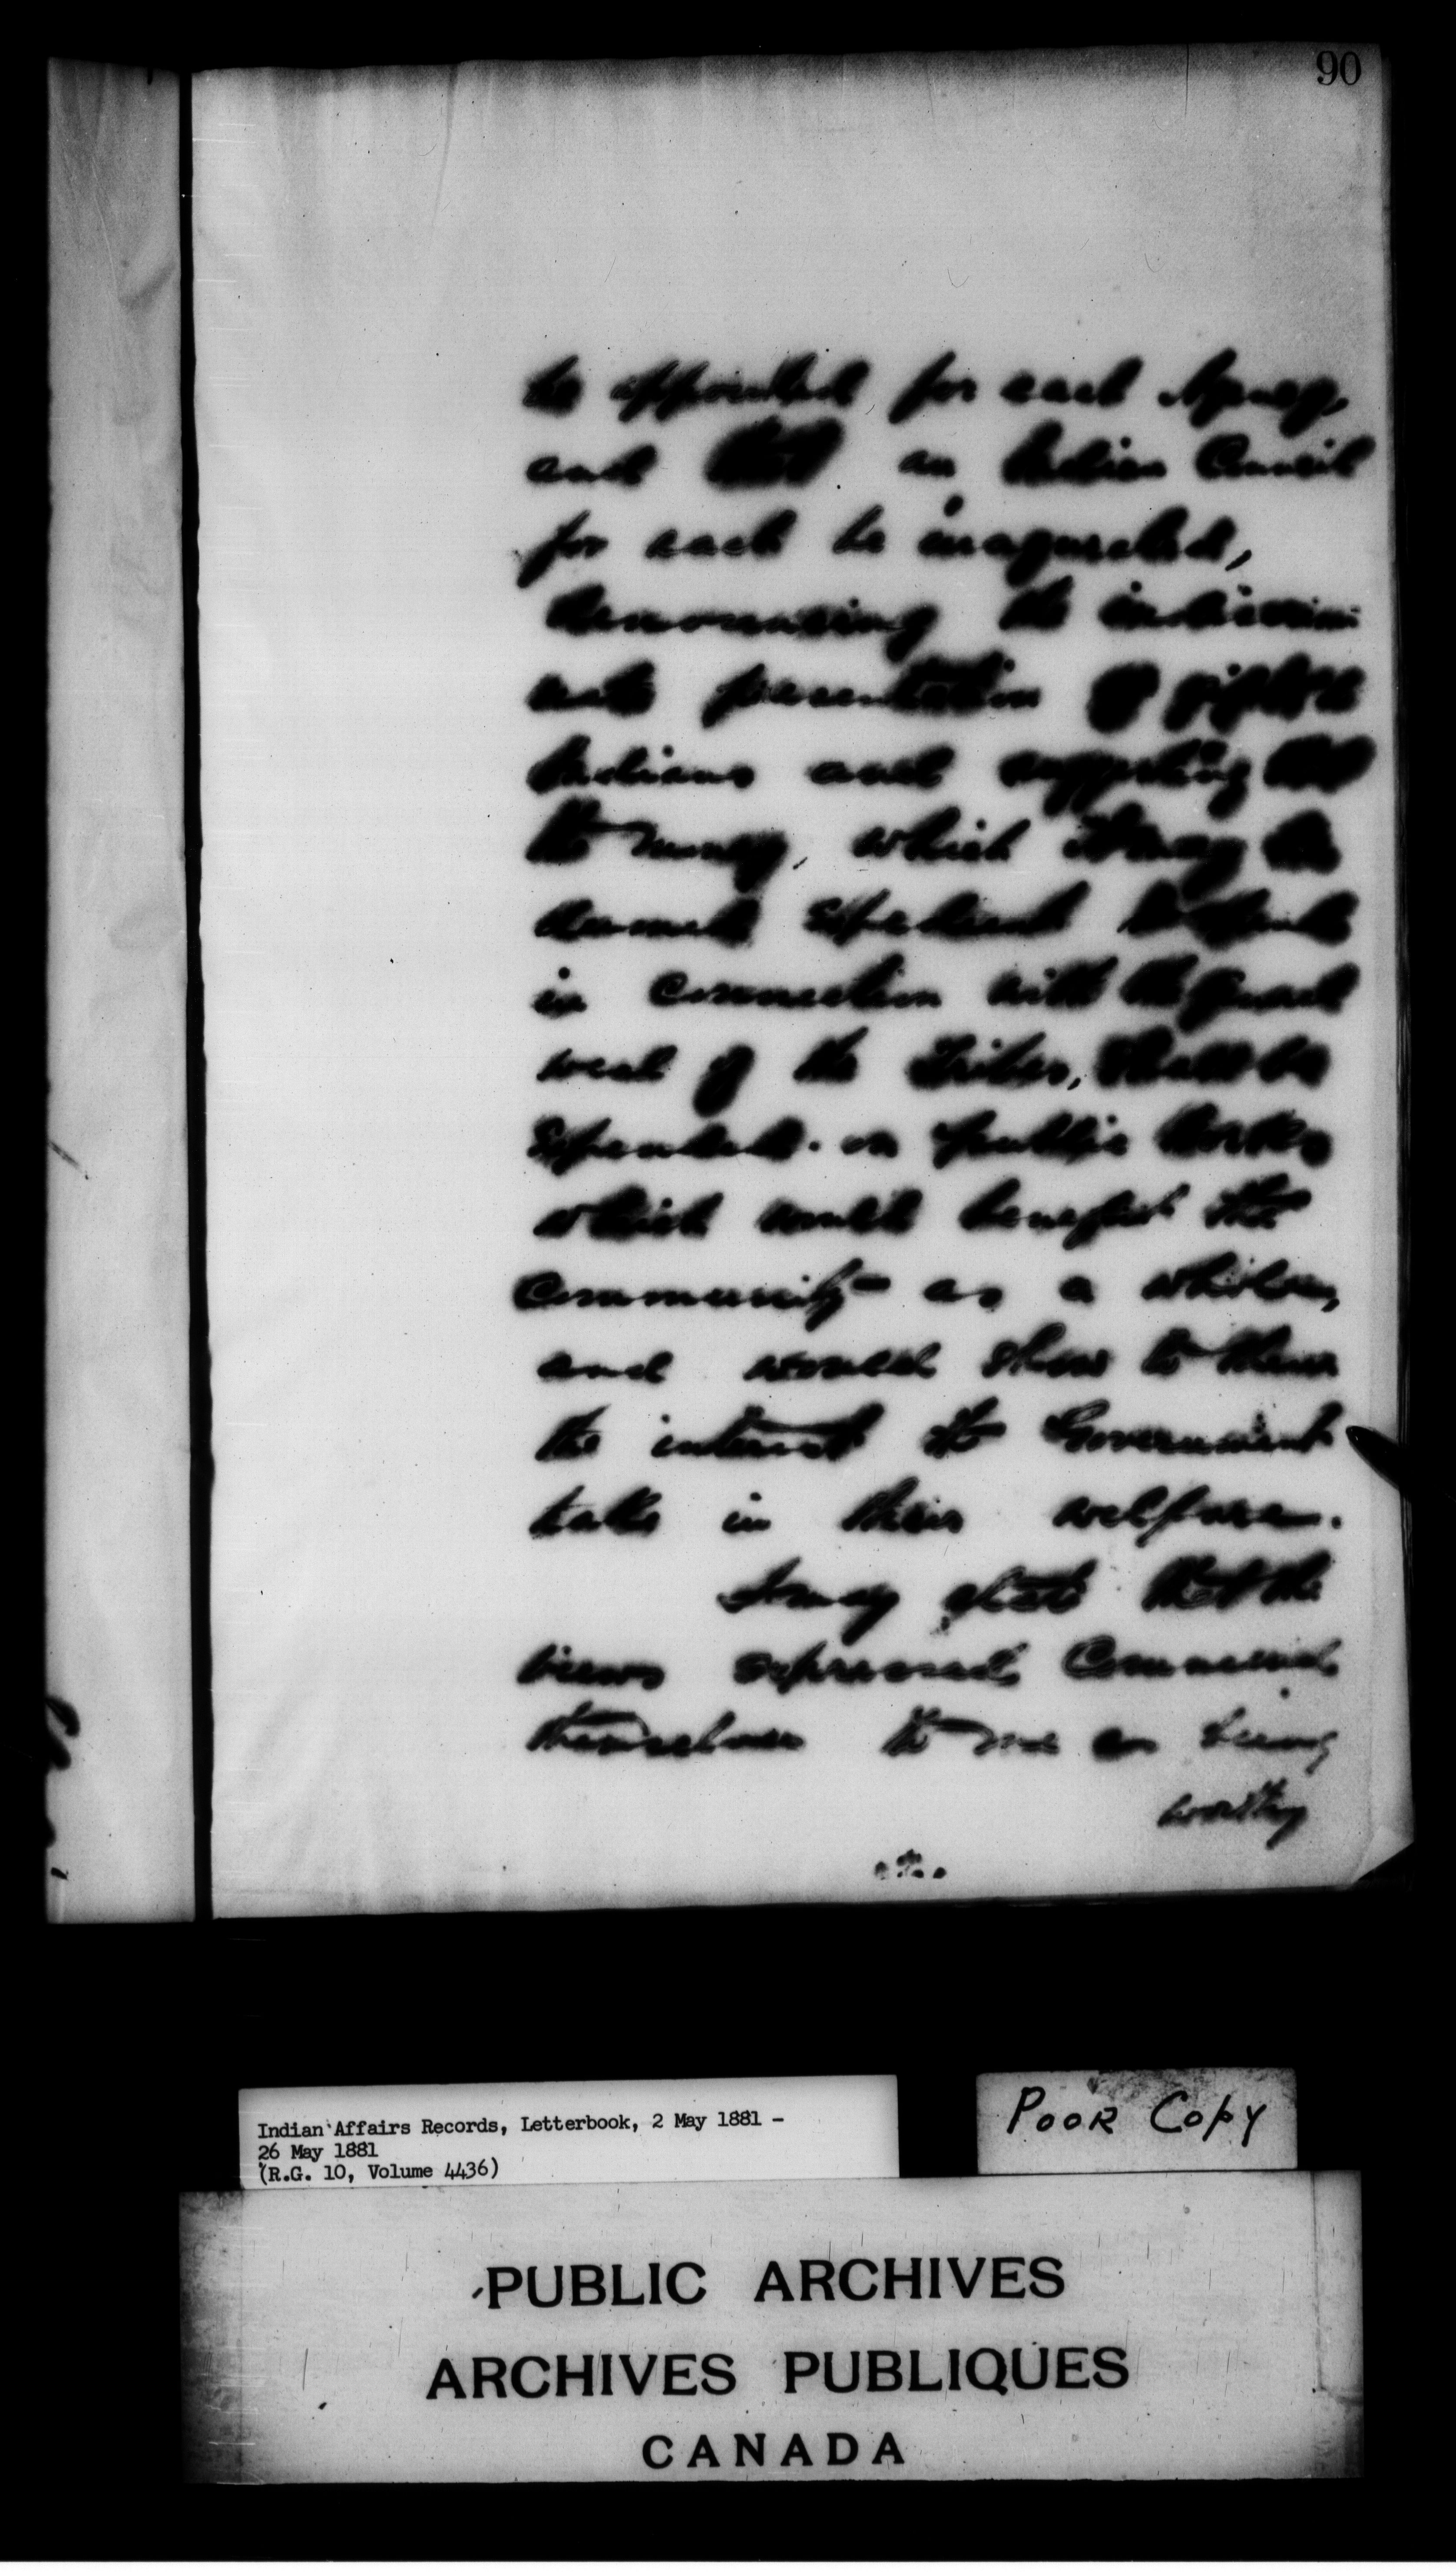 90
be appointed for each Agency,
and that an Indian Council
for each be inaugurated,
denouncing the indiscrim-
inate presentation of gifts to
Indians and suggesting that
the money, which it may be
deemed expedient to spend
in connection with the general
weal of the Tribes, shall be
expended in public works
which would benefit the
Community as a whole,
and would show to them
the interest the Government
take in their welfare.
I may state that the
views expressed, commend
themselves to me as being
worthy
Indian Affairs Records, Letterbook, 2 May 1881 -
26 May 1881
(R.G. 10, Volume 4436)
POOR COPY
PUBLIC ARCHIVES
ARCHIVES PUBLIQUES
CANADA